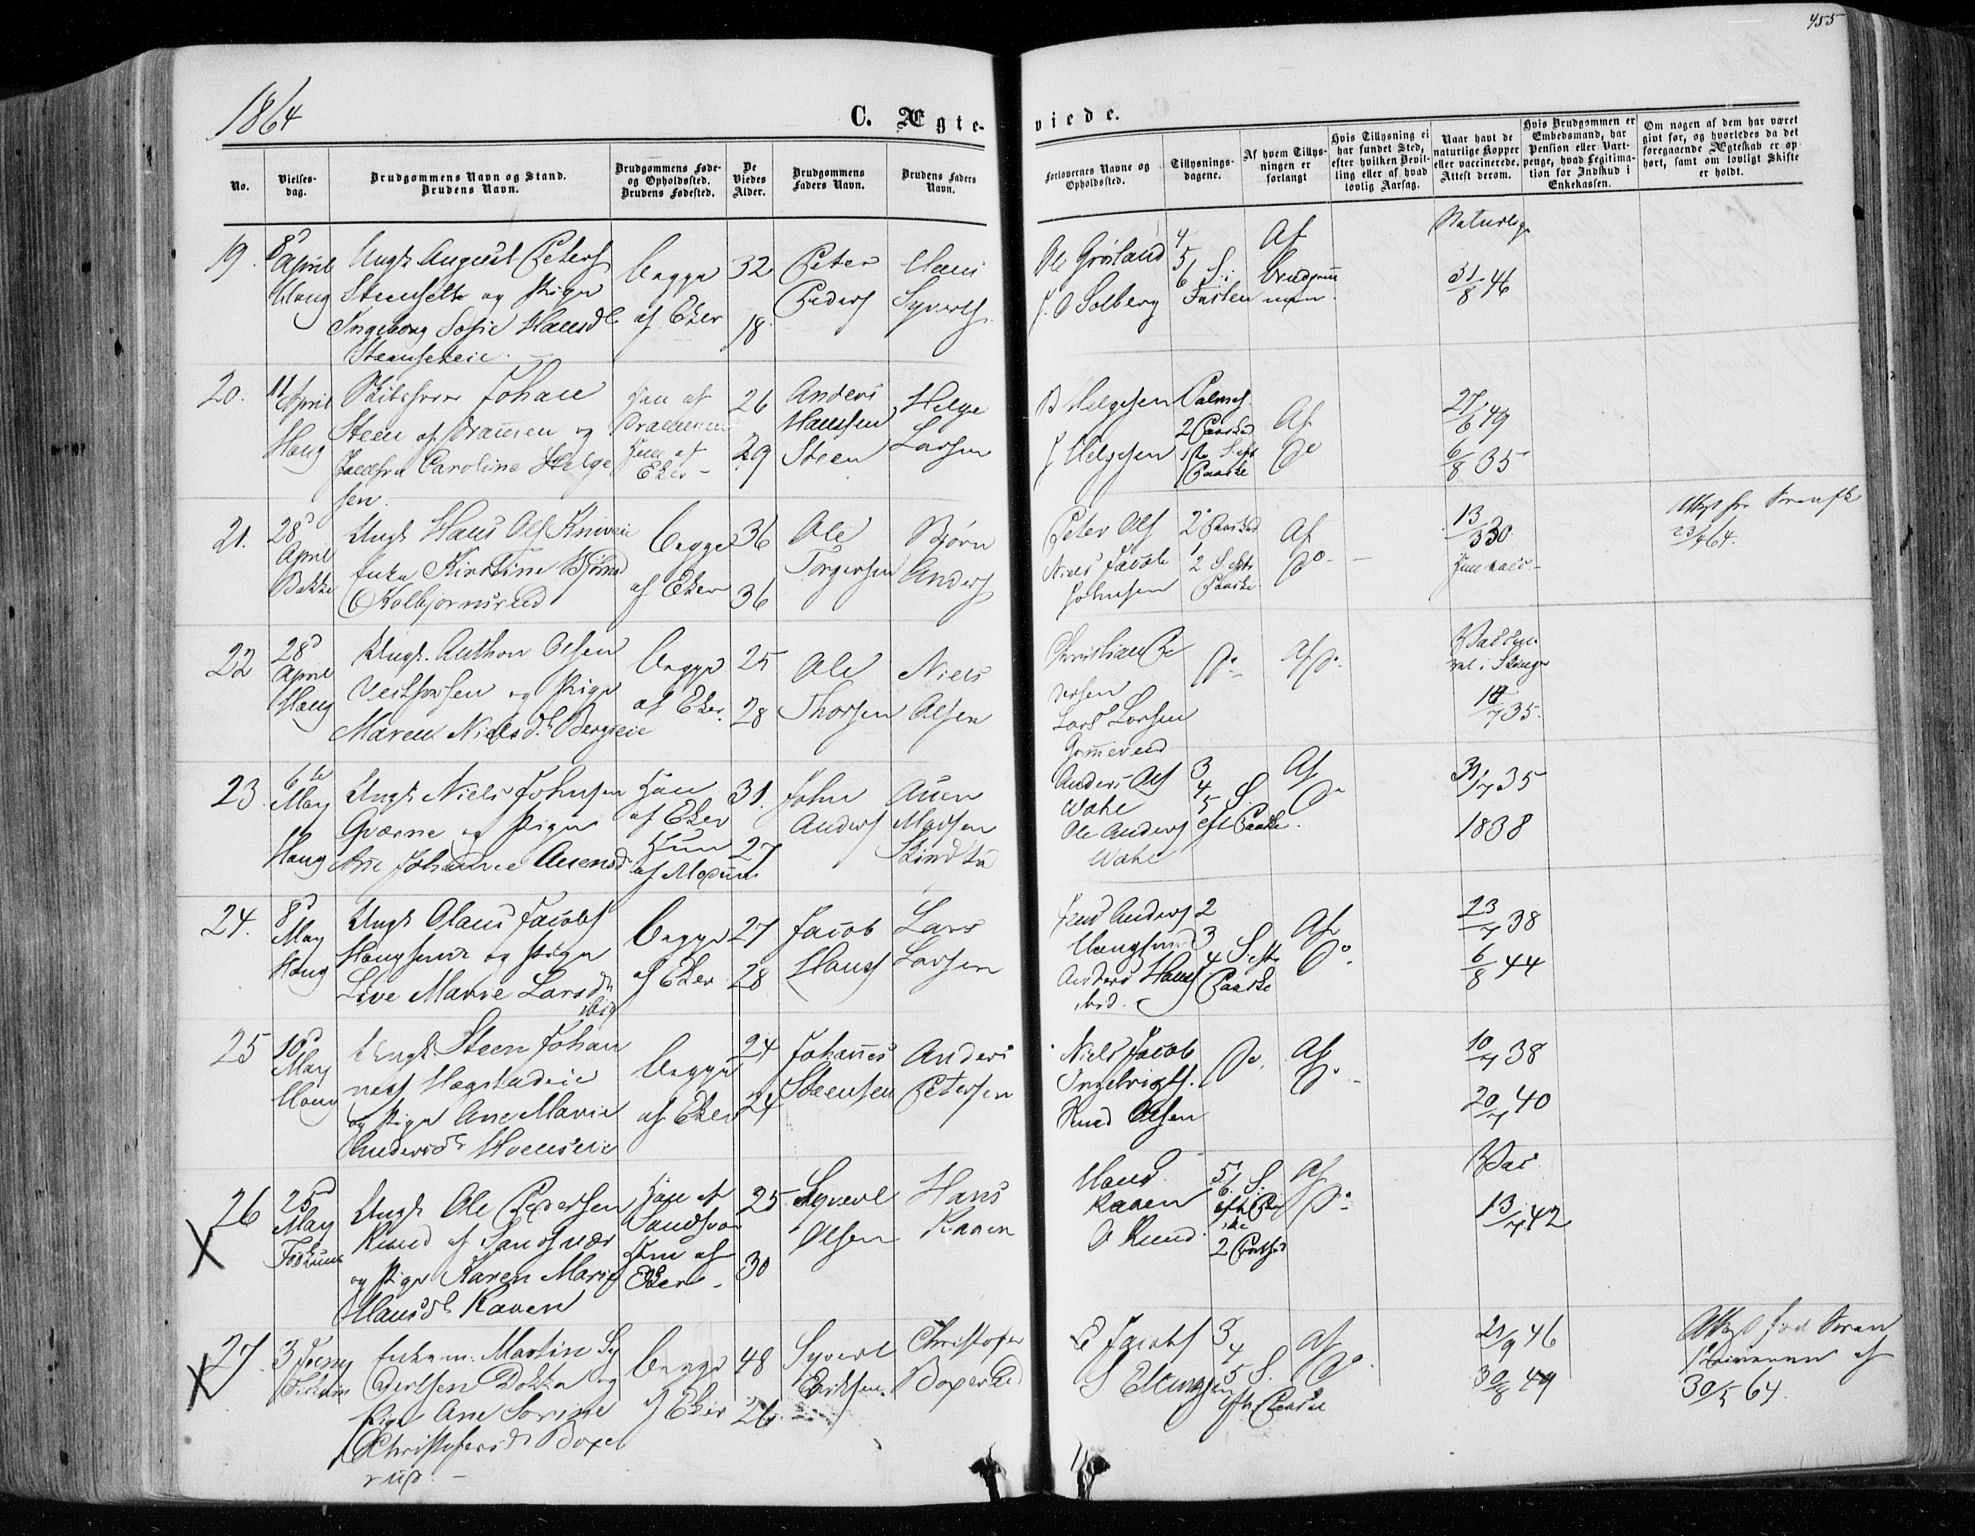 455
1864
C. Ægte-
viede.
No.
Vielses-
dag.
Brudgommens Navn og Stand.
Brudens Navn.
Brudgommens Føde-
og Opholdssted.
Brudens Fødested.
De
Viedes
Alder.
Brudgommens
Faders Navn.
Brudens Faders
Navn.
Forlovernes Navne og
Opholdssted.
Tillysnings-
dagene.
Af hvem Tillys-
ningen er
forlangt
Hvis Tillysning ei
har fundet Sted,
efter hvilken Bevil-
ling eller af hvad
lovlig Aarsag.
Naar havt de
naturlige Kopper
eller vaccinerede.
Attest derom.
Hvis Brudgommen er
Embedsmand, har
Pension eller Vart-
penge, hvad Legitima-
tion for Indskud i
Enkekassen.
Om nogen af dem har været
gift før, og hvorledes da det
foregaaende Ægteskab er op-
hørt, samt om lovligt Skifte
er holdt.
19. 8d
April
Houg
Ungk. August Peters
og Pige
Ingeborg Sofie Hansdt
Begge
af Eker
32
18
Peter
Peders
Hans
Syverts.
Ole Grøsland
J. O Solberg
4
5
6 S. i
Fasten
Af
Brudgom
men.
Naturlige
31/8 46
20. 11 April
Houg
Johan
Steen af Drammen og
Jomfru Caroline Helge
sen.
Han af
Drammen
Hun af
Eker
26
29
Anders
Hanssen
Steen
Helge
Larsen
B Helgesen
J Helgesen
Palmes.
2 Paaske
1ste S. eft
Paaske
Af
Do
27/6 49
6/8 35
21. 28d
April
Bakke
Ungk Hans Ols Kniveie
Enke Kirstine Bjørnsd
Kolbjørnsrud
Begge
af Eker
36
36
Ole
Torgersen
Bjørn
Anders
Peter Ols
Niels Jacob
Johnsen
2 Paaske
1
2 S. eft
Paaske
Af
Do
13/3 30.
22 28d
April
Houg
Ungk. Anthon Olsen
og Pige
Maren Nielsdt. Bergseie
Begge
af Eker.
25
28
Ole
Thorsen
Niels
Olsen
Christian Pe
dersen
Lars Larsen
Do
Af Do
14/7 35.
23. 6te
May
Houg
Ungk Niels Johnsen
Qværne og Pige
Ane Johanne Auensd
Han
af Eker
Hun
af Modum
31.
27
John
Anders
Auen
Madsen
Anders Ols
Wahl
Ole Anders
Wahl
3
4
5 S.
eft Paaske.
Af
Do
31/7 35
1838
24. 8d
May
Houg
Ungk Olaus Jacobs
Hougsund og Pige
Live Marie Larsdt
ibid
Begge
af Eker
27
28
Jacob
Hans
Lars
Larsen
Jens Anders
Hougsund
Anders Hans
ibid.
2
3
4 S. eft
Paaske
Af
Do.
23/7 38
6/8 44
25 10d
May
Houg
Ungk. Steen Johan
nes Hogstadeie
og Pige Ane Marie
Andersdt Hoenseie
Begge
af Eker
24
24
Johannes
Steensen
Anders
Petersen
Niels Jacob
Ingebrigts.
Knud Olsen
Do.
Af
Do
10/7 38
20/7 40
26 25
May
Fiskum
Ungk Ole Pedersen
Ruud af Sandsvær
og Pige Karen Marie
Hansdt Raaen
Han af
Sandsvær
Hun af
Eker
25.
30
Syverl
Olsen
Hans
Raaen
Hans
Raaen
O Ruud
5
6 S.
eft Paa
ske
2 Pintsed
Af
Do
Vac
13/7 42
27. 3 Juny
Fiskum
Enkem. Martin Sy
vertsen Dokka og
Pige Ane Sorine
Christofersdt Boxe
rud.
Begge
af Eker
48
26
Syvert
Eriksen
Christofer
Boxerud
E Jacobs
S Ellingsen
3
4
5 S.
eft Paaske
Af
Do.
21/9 46
30/8 49
Attest fra
af
30/5 64.